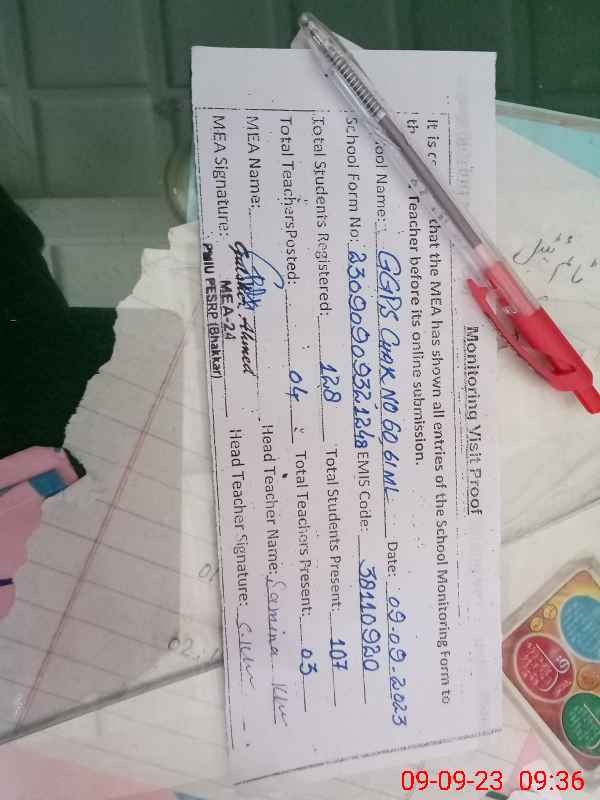 Monitoring Visit Proof
It is chat the MEA has shown all entries of the School Monitoring Form to
th Teacher before its online submission.
ool Name: GGPS Chak No 60,61 ML Date: 09-09-2023
School Form No: 23090909321248 EMIS Code: 38110920
Total Students Registered: 128 Total Students Present: 107
Total TeachersPosted: 04 Total Teachers Present: 03
MEA Name: Ahmed Head Teacher Name: Samina
MEA Signature: MEA-24 Head Teacher Signature:
PMIU PESRP (Bhakkar)
09-09-23 09:36